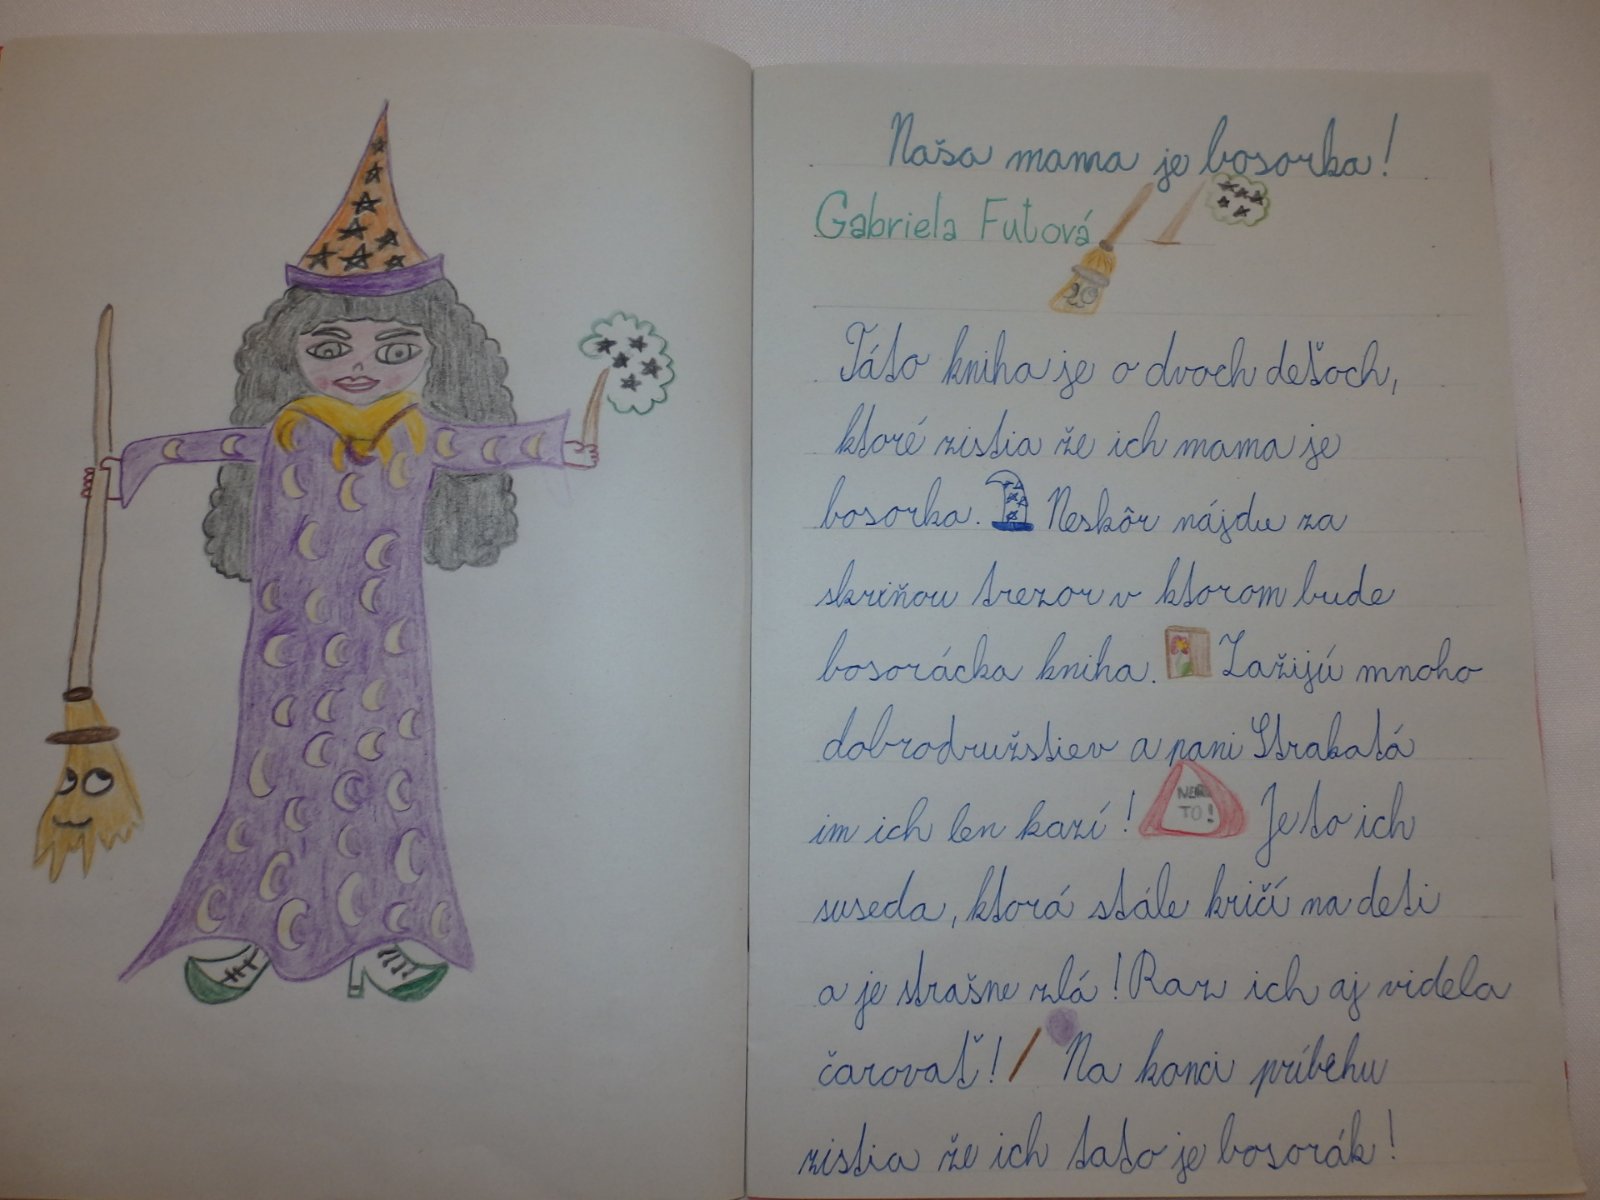 Naša mama je bosorka!
Gabriela Futová
Táto kniha je o dvoch deťoch,
ktoré zistia že ich mama je
bosorka. Neskôr nájdu za
skriňou trezor v ktorom bude
bosorácka kniha. Zažijú mnoho
dobrodružstiev a pani Strakatá
im ich len kazí! Je to ich
TO!
suseda, ktorá stále kričí na deti
a je strašne zlá! Raz ich aj videla
čarovať! Na konci príbehu
zistia že ich tato je bosorák!